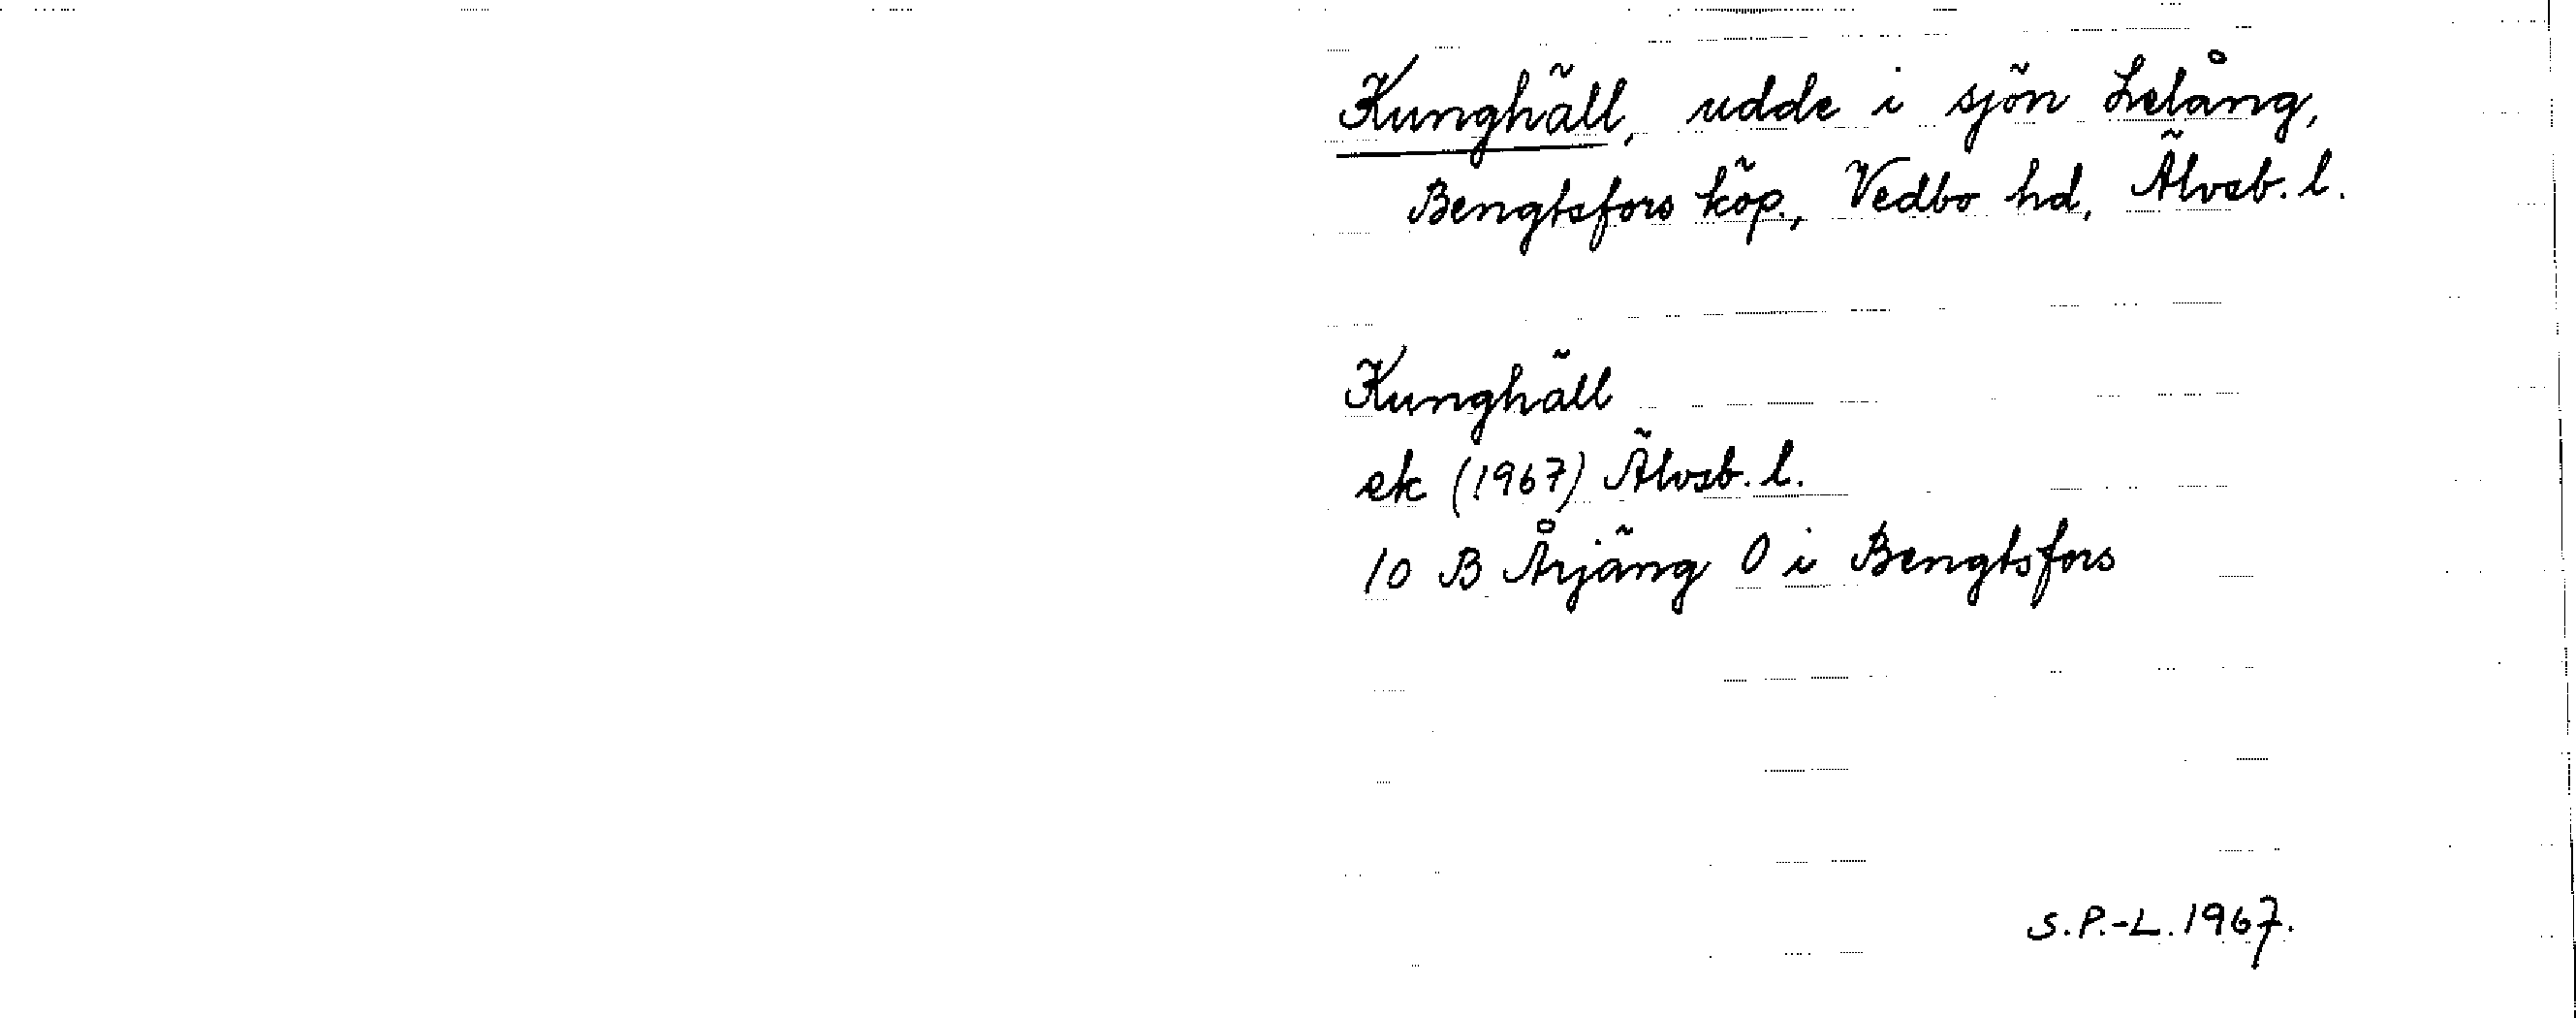 Kunghäll, udde i sjön Lelång,
Bengtsfors köp., Vedbo hd, Älvsb. l.
Kunghäll
ek (1967) Älvsb. l.
10 B Årjäng O i Bengtsfors
S.P.-L. 1967.